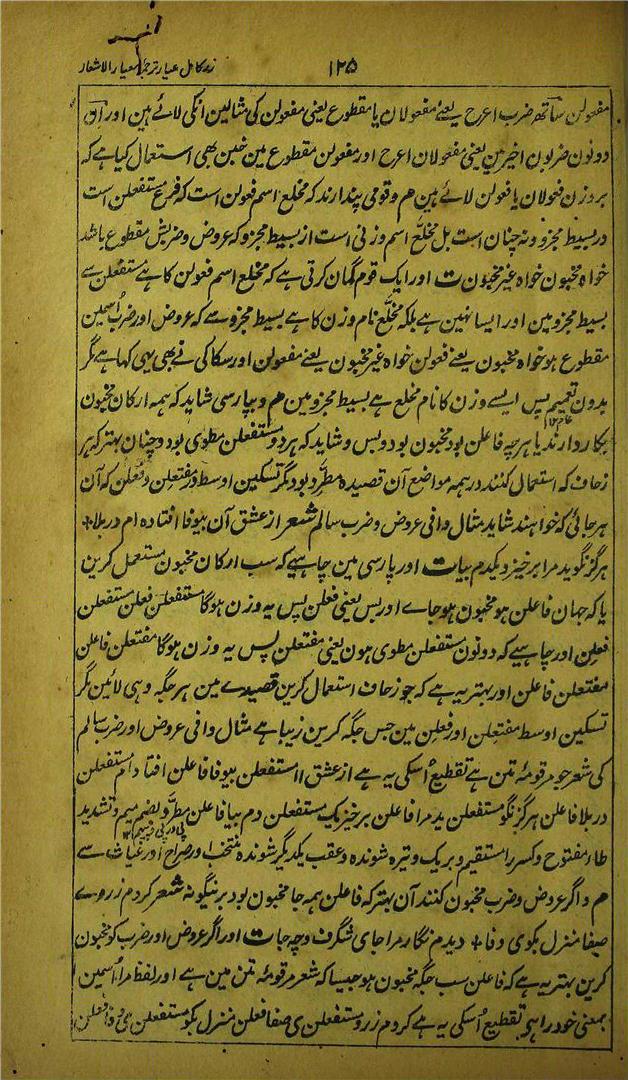 زر کامل عیار ترجمہ معیار الاشعار ۱۲۵
مفعولن ساتھ ضرب اعرج یعنے مفعولان یا مقطوع یعنی مفعولن کی مثالین انکی لائے ہین اور ان
دونون ضربون اخیرین یعنی مفعولان اعرج اور مفعولن مقطوع مین خبن بھی استعمال کیا ہے کہ
بروزن فعولان یا فعولن لائے ہین هم و قومی پندارند که مخلع اسم فعولن است که فرع مستفعلن است
در بسیط مجزو و نه چنان است بل مخلع اسم وزنی است از بسیط مجزو که عروض و ضربش مقطوع باشد
خواه مخبون خواه غیر مخبون ت اور ایک قوم گمان کرتی ہے کہ مخلع اسم فعولن کا ہے مستفعلن سے
بسیط مجزو مین اور ایسا نہین ہے بلکہ مخلع نام وزن کا ہے بسیط مجزو سے کہ عروض اور ضرب اُسمین
مقطوع ہو خواہ مخبون یعنے فعولن خواہ غیر مخبون یعنے مفعولن اور سکاکی نے بھی یہی کہا ہے مگر
بدون تعمیم پس ایسے وزن کا نام مخلع ہے بسیط مجزو مین هم و بپارسی شاید که همه ارکان مخبون
بکار دارند یا هر چه فاعلن بود مخبون بود و بس و شاید که هر دو مستفعلن مطوی بود و چنان بهتر که هر
زحاف که استعمال کنند در همه مواضع آن قصیده مطرد بود مگر تسکین اوسط در مفتعلن و فعلن که آن
هر جائی که خواهند شاید مثال وافی عروض و ضرب سالم شعر از عشق آن بیوفا افتاده ام در بلا+
هرگز نگوید مرا برخیز و یکدم بیا ت اور پارسی مین چاہیے کہ سب ارکان مخبون مستعمل کرین
یا کہ جہان فاعلن ہو مخبون ہو جاے اور بس یعنی فعلن پس یہ وزن ہوگا مستفعلن فعلن مستفعلن
فعلن اور چاہیے کہ دونون مستفعلن مطوی ہون یعنی مفتعلن پس یہ وزن ہوگا مفتعلن فاعلن
مفتعلن فاعلن اور بہتر یہ ہے کہ جو زحاف استعمال کرین قصیدے مین ہر جگہ وہی لائین مگر
تسکین اوسط مفتعلن اور فعلن مین جس جگہ کرین زیبا ہے مثال وافی عروض اور ضرب سالم
کی شعر جو مرقومۂ متن ہے تقطیع اُسکی یہ ہے از عشق اا مستفعلن بیوفا فاعلن افتاد ام مستفعلن
در بلا فاعلن هرگز نگو مستفعلن ید مرا فاعلن برخیز یک مستفعلن دم بیا فاعلن مطرد بضم میم و تشدید
طاء مفتوح و کسر را مستقیم و بر یک و تیره شونده و عقب یکدیگر شونده منتخب اور صراح اور غیاث سے
هم و اگر عروض و ضرب مخبون کنند آن بهتر که فاعلن همه جا مخبون بود برینگونه شعر کردم زروے
صفا منزل بکوی وفا + دیدم نگار مرا جای شگرف و چه جا ت اور اگر عروض اور ضرب کو مخبون
کرین بہتر یہ ہے کہ فاعلن سب جگہ مخبون ہو جیسا کہ شعر مرقومۂ متن مین ہے اور لفظ مرا اُسمین
بمعنی خود را ہو تقطیع اُسکی یہ ہے کردم زرو مستفعلن ی صفا فعلن منزل بکو مستفعلن ی وفا فعلن